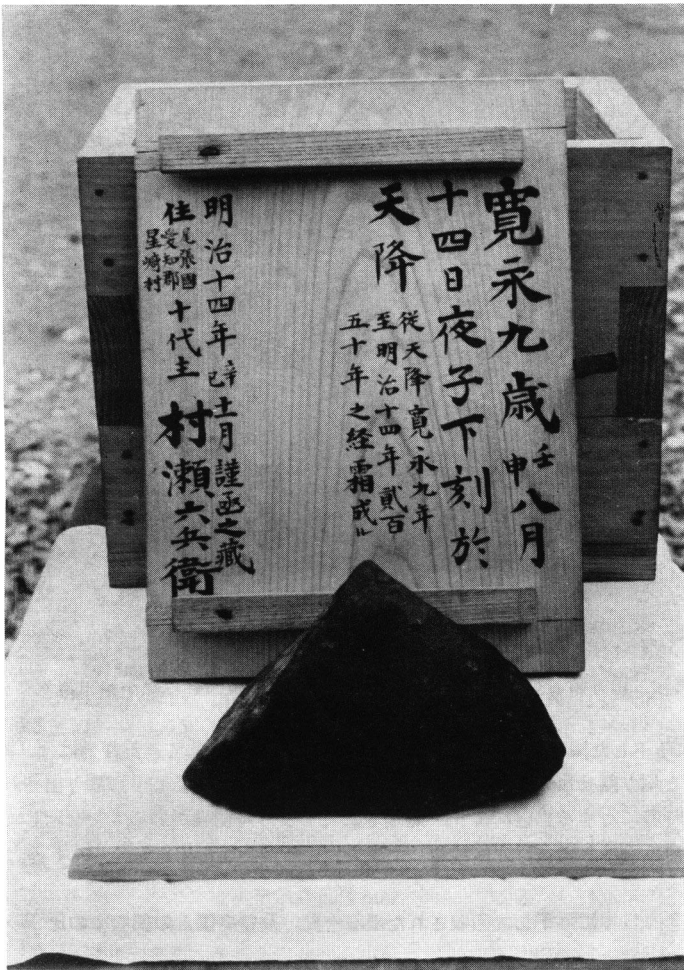 寛永九歳壬申八月
十四日夜子下刻於
天降
従天降寛永九年
至明治十四年貳百
五十年之経霜成ル
明治十四年辛巳十一月謹函之藏
住尾張國愛知郡星崎村十代主村瀬六兵衛